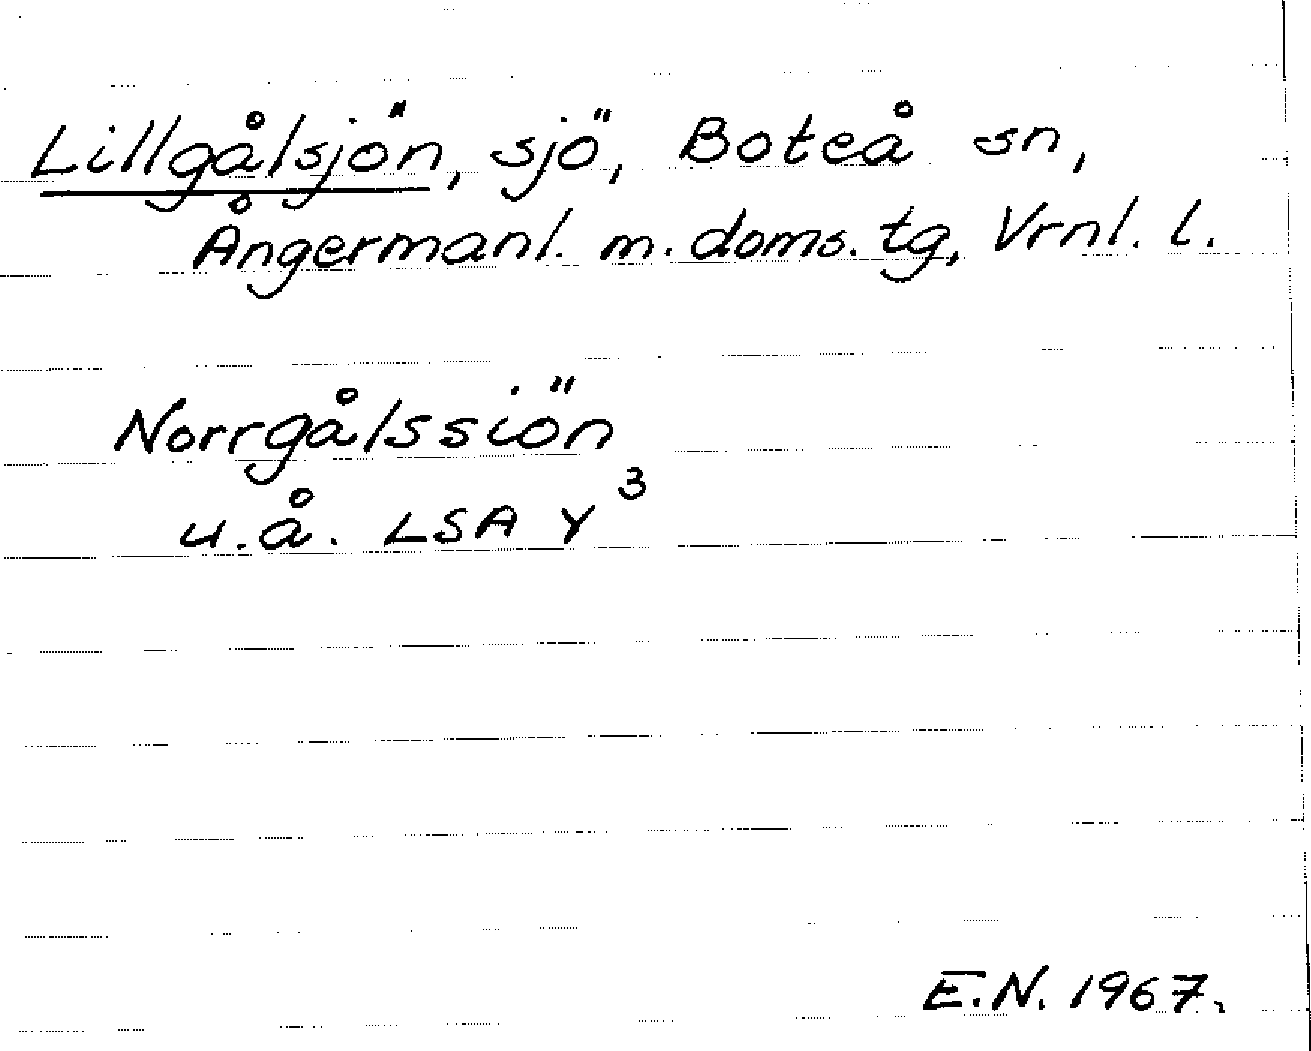 Lillgålsjön, sjö, Boteå sn,
Ångermanl. m. doms. tg, Vrnl. l.
Norrgålssiön
u.å. LSA Y³
E.N. 1967.